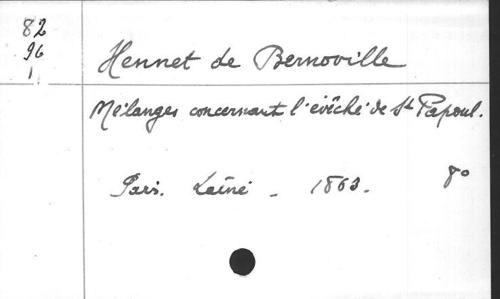 82
96
1
Hennet de Bernoville
Mélanges concernant l'évêché de St Papoul.
Paris. Lainé - 1863. 8o